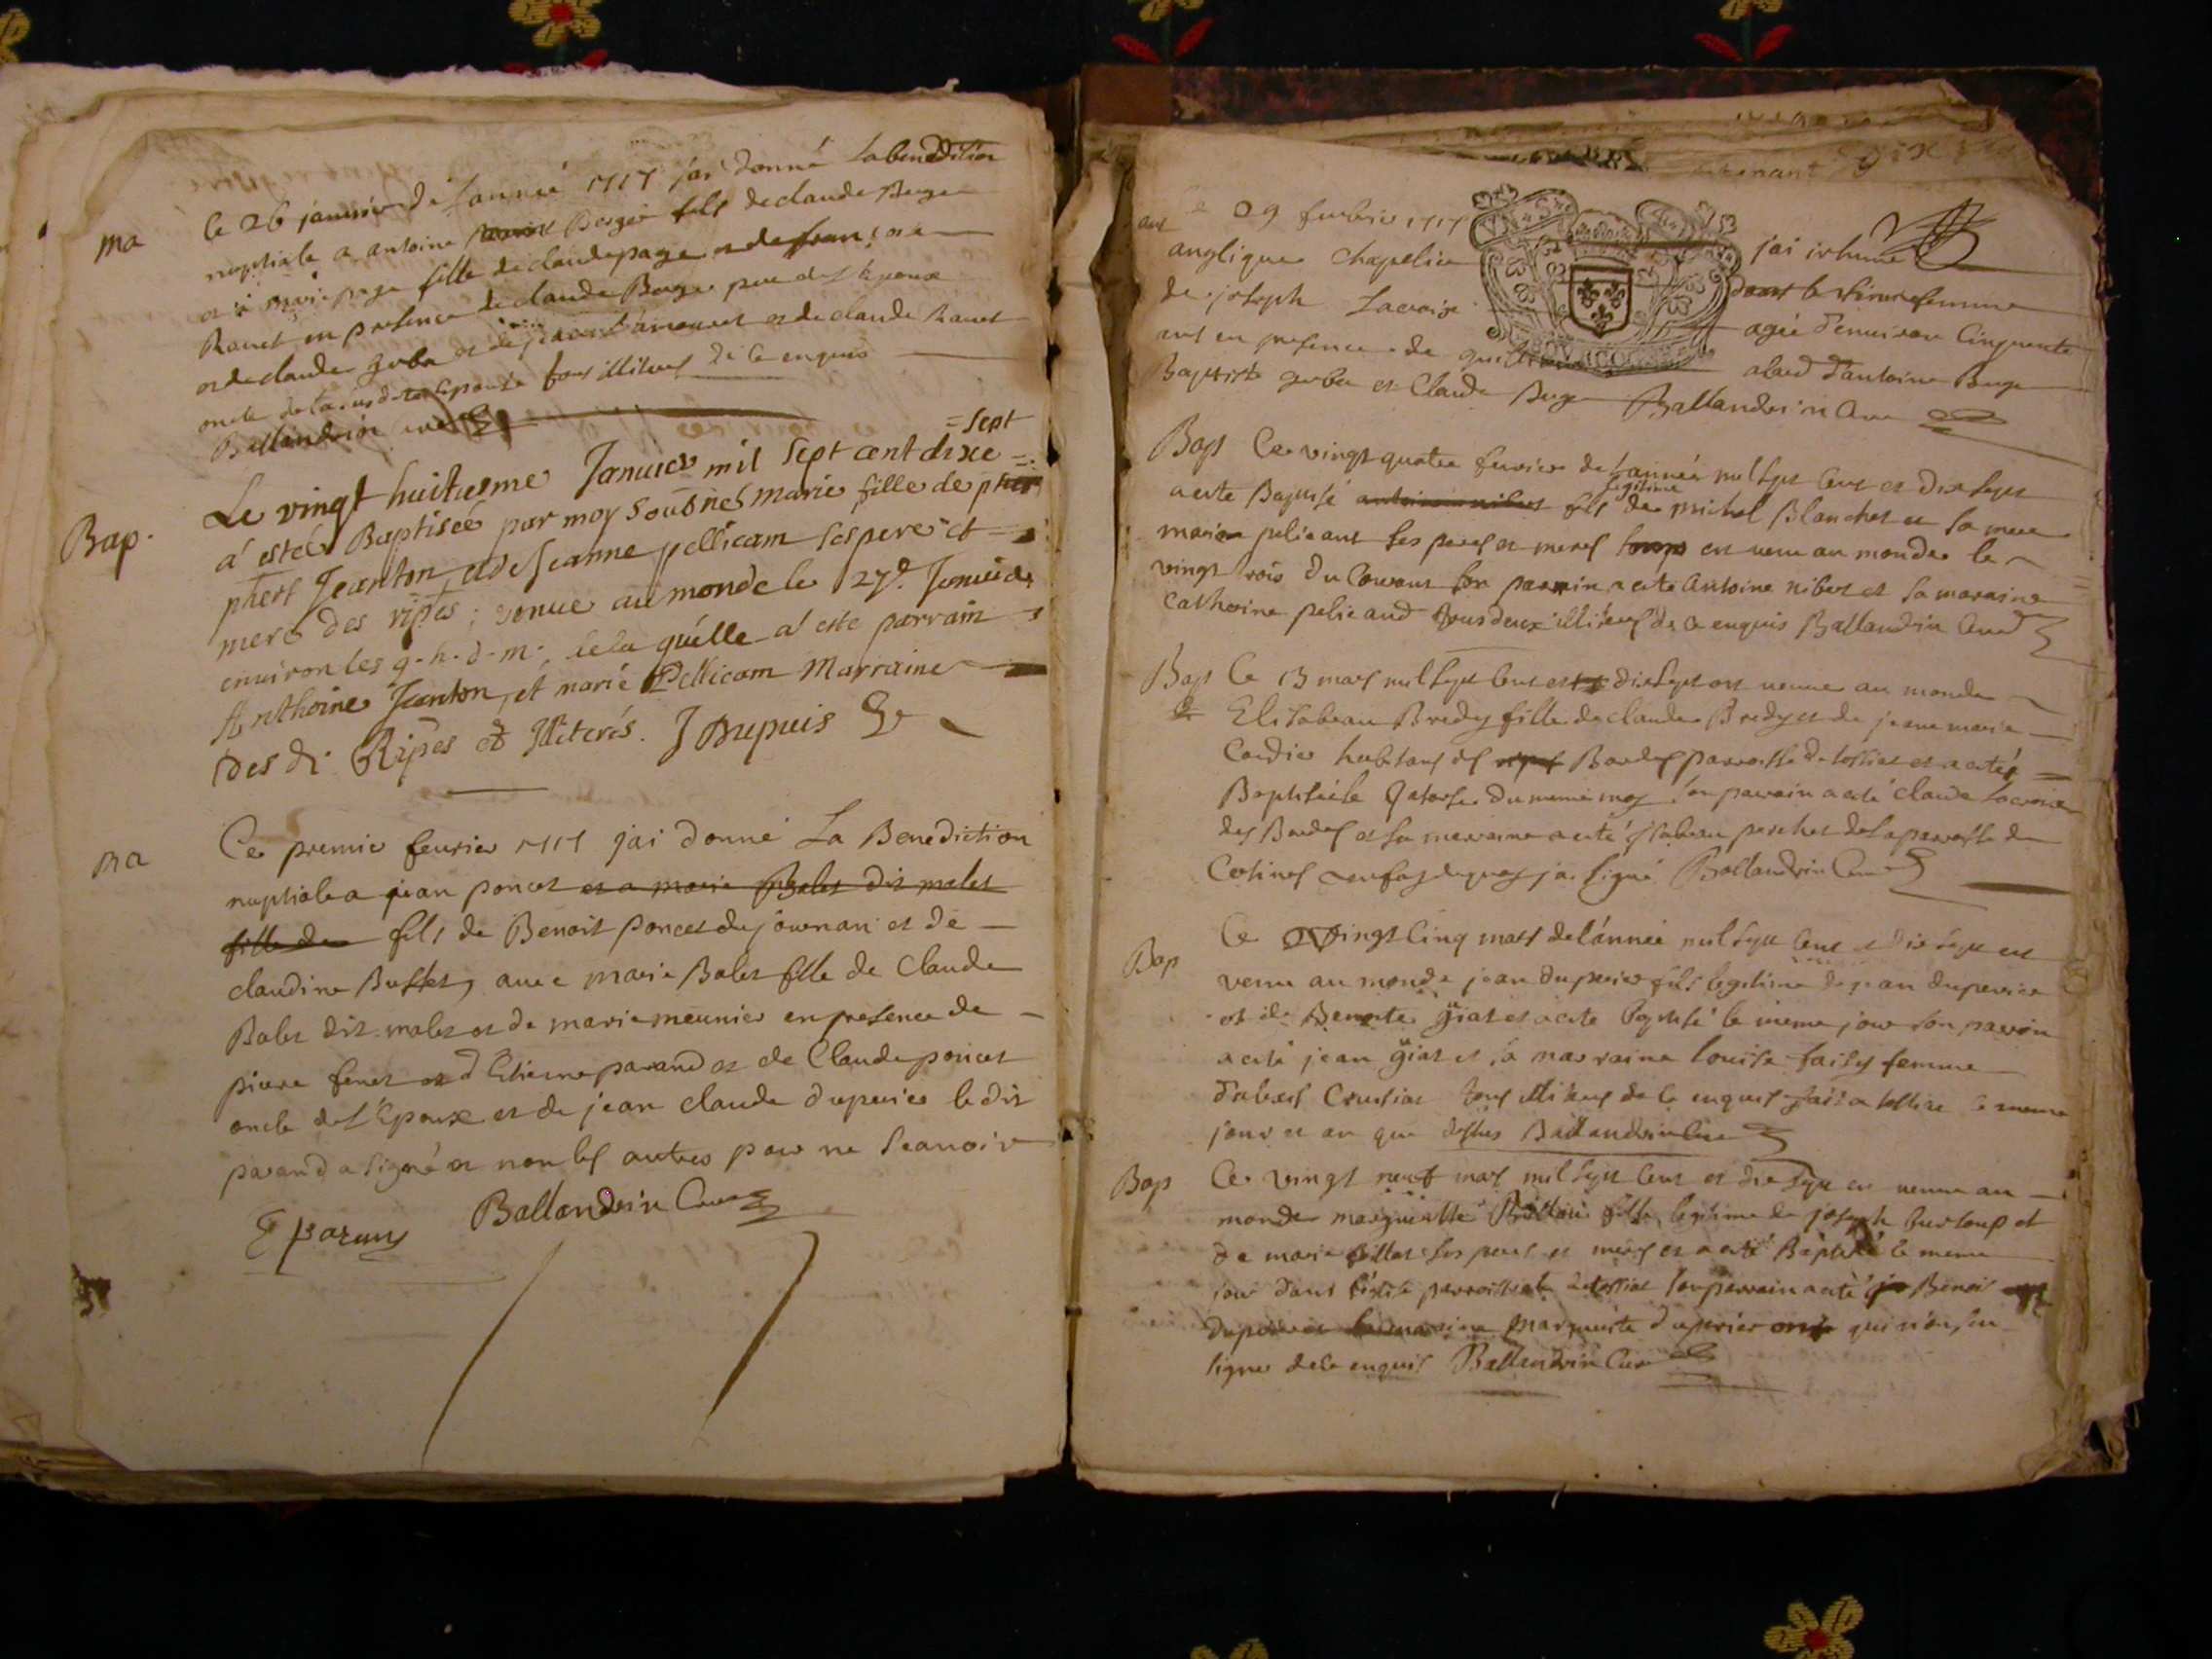 ma
le 26 janvier de l'année 1717 j'ai donné la benediction
nuptiale a antoine Berger fils de claude Berger
et a marie page fille de claude page et de françoise
Ravet en presence de claude Berger pere de l'epoux
et de claude goba et de et de claude Ravet
oncle de la epouse tous illiteres de ce enquis
Ballandrin curé
= sept
Bap.
Le vingt huitiesme Januier mil sept cent dixe =
a estée Baptisée par moy soubné marie fille de
phert Jeanton et de Jeanne pellicam ses pere et
mere des rippes ; venue au monde le 27e. Januier
environ les 9. h. d. m. a laquelle a este parrain
Anthoine Jeanton, et marie Pellicam Marraine
des di Ripes et Illiterés. J Dupuis
ma
Ce premier feurier 1717 jai donné La Benediction
nuptiale a jean poncet et a marie Balet dit malet
fille de fils de Benoit poncet du journan et de
claudine Buffet, avec marie Balet fille de Claude
Balet dit malet et de marie meunier en presence de
pierre fenet et d'Etienne parand et de Claude poncet
oncle de l'Epoux et de jean claude duperier le dit
parand a signé et non les autres pour ne scauoir
E parand Ballandrin Curé
29 feubrier 1717 j'ai inhumé
angelique Chapelier femme
de joseph Lacroix agée d'environ Cinquante
ans en presence de
Baptiste goba et Claude Berger Ballandrin Curé
Bap Ce vingt quatre feurier de l'année mil sept cent et dix sept
legitime
a esté Baptisé antoine nibert fils de michel Blanchet et sa mere
marie pelicant ses peres et meres est venu au monde le
vingt trois du Courant son parrain a esté Antoine nibert et sa maraine
Catherine pelicaud tous deux illiteres de ce enquis Ballandrin Curé
Bap Ce 13 mars mil sept cent et dix sept est venue au monde
Elisabeau Bredy fille de claude Bredy et de jeane marie
Cordier habitans des Bordes parroisse de tossiat et a esté
Baptisée le quatorse du meme moy son parrain a esté claude Lacroix
des Bordes et sa maraine a esté isabeau perchet de la paroisse de
en foy de quoy jai signé Ballandrin Curé
Bap
Ce vingt Cinq mars de l'année mil sept cent et dix sept est
venu au monde jean duperier fils legitime de jean duperier
et de Benoite giat et a esté baptisé le meme jour son parrin
a esté jean giat et sa marraine Louise faisy femme
tous illiteres de ce enquis fait a tossiat le meme
jour et an que dessus Ballandrin Curé
Bap Ce vingt neuf mars mil sept cent et dix sept est venue au
monde margueritte fille legitime de joseph et
de marie ses peres et meres et a esté Baptisée le meme
jour dans l'eglise parroissiale de tossiat son parrain a esté Benoit
duperier et sa maraine marguerite duperier qui n'ont sceu
signer de ce enquis Ballandrin Curé